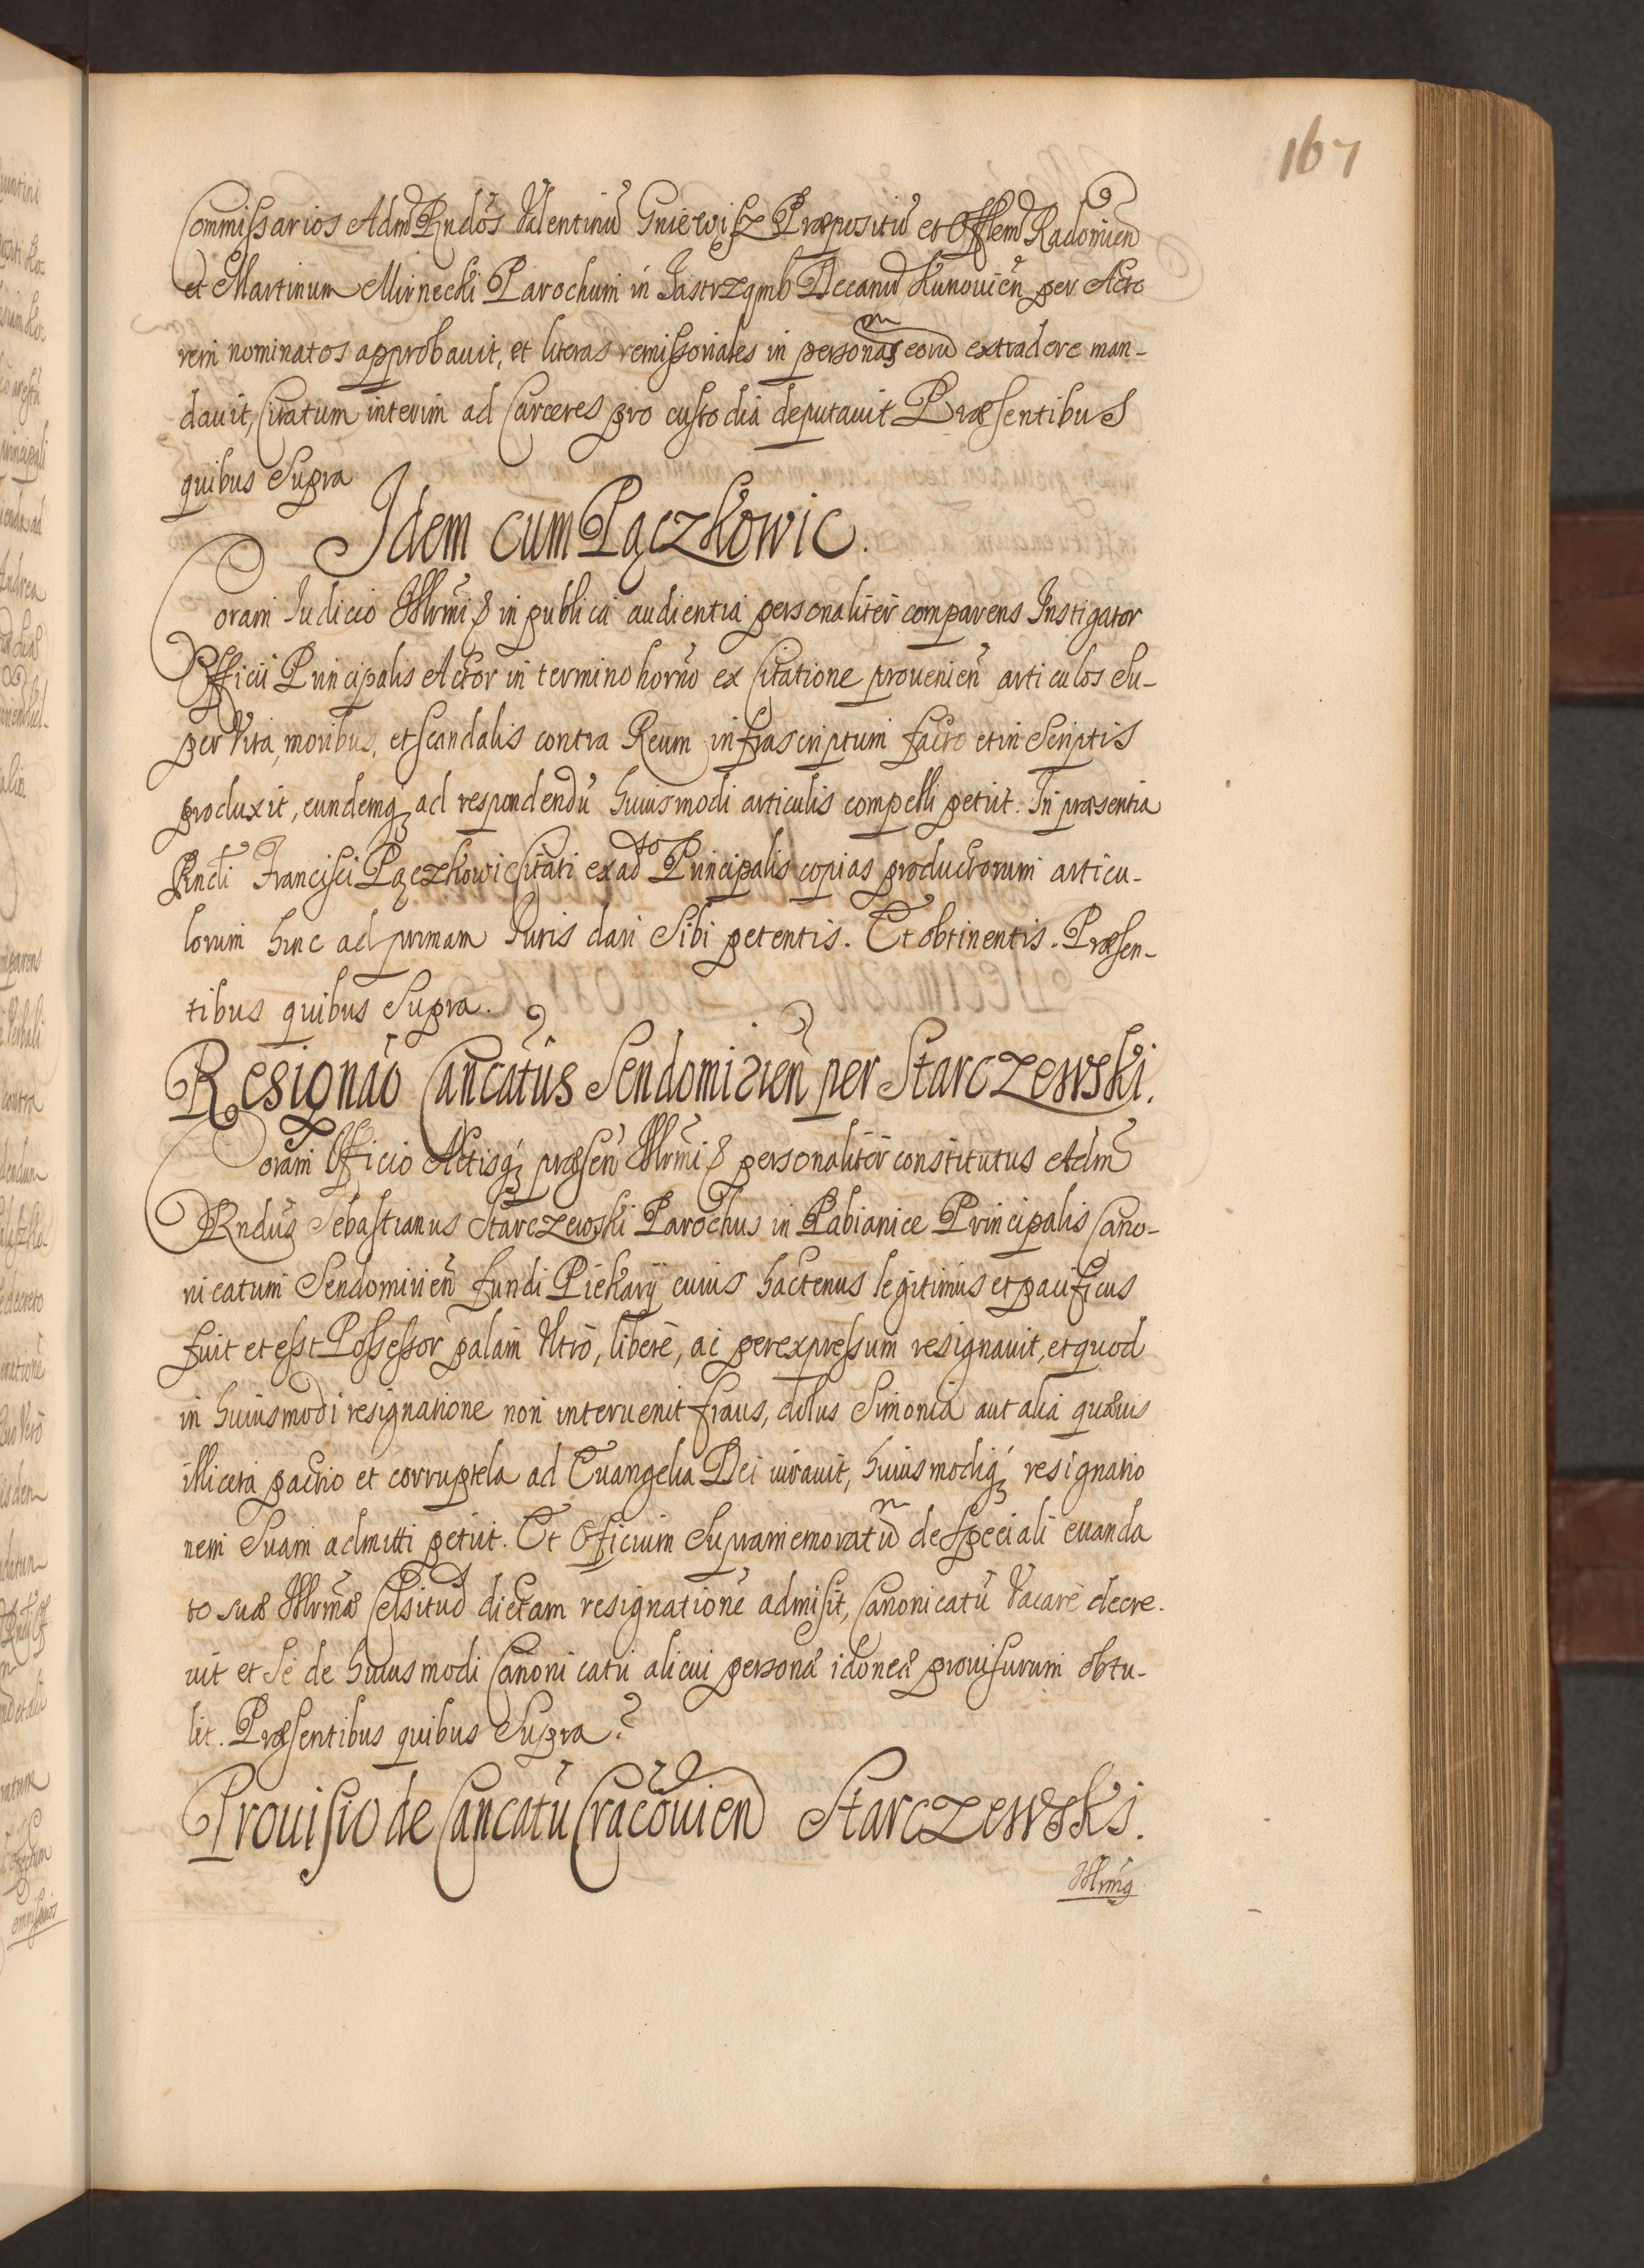 167
Commissarios Adm Rndos Valentinu Gniewisz Præpositu et Offlem Radomien
et Martinum Mirnecki Parochum in Jastrzqmb Decanu Kunouien per Acto
rem nominatos approbauit, et literas remissoriales in personas eoru extradere man-
dauit, Citatum interim ad Carceres pro custodia deputauit Præsentibus
quibus Supra
Idem cum Pączkowic.
Coram Iudicio Illrmi & in publica audientia personaliter comparens Instigator
Officii Principalis Actor in termino horno ex Citatione prouenien articulos Su-
per Vita, moribus, et scandalis contra Reum infrascriptum facto et in Scriptis
produxit, eundemq ad respondendu huiusmodi articulis compelli petiit. In præsentia
Rndi Francisci Pączkowic Citati ex adto Principalis copias productorum articu-
lorum hinc ad primam Iuris dari Sibi petentis. Et obtinentis. Præsen-
tibus quibus Supra.
Resignao Cancatus Sendomirien per Starczewski.
Coram Officio Actisq præsen Illrmi & personaliter constitutus Adm
Rndus Sebastianus Starczewski Parochus in Pabianice Principalis Cano-
nicatum Sendomirien fundi Piekary cuius hactenus legitimus et pacificus
fuit et est Possessor palam Vltro, libere, ac per expressum resignauit, et quod
in huiusmodi resignatione non interuenit fraus, dolus Simonia aut alia quæuis
illicita pactio et corruptela ad Euangelia Dei iurauit, huiusmodiq resignatio
nem Suam admitti petiit. Et Officium Supramemoratu de Speciali euanda
to suæ Illrmæ Celsitud dictam resignatione admisit, Canonicatu Vacare decre-
uit et Se de huiusmodi Canonicatu alicui personæ idoneæ prouisurum obtu-
lit. Præsentibus quibus Supra.
Prouisio de Cancatu Cracouien Starczewski.
Illrmg